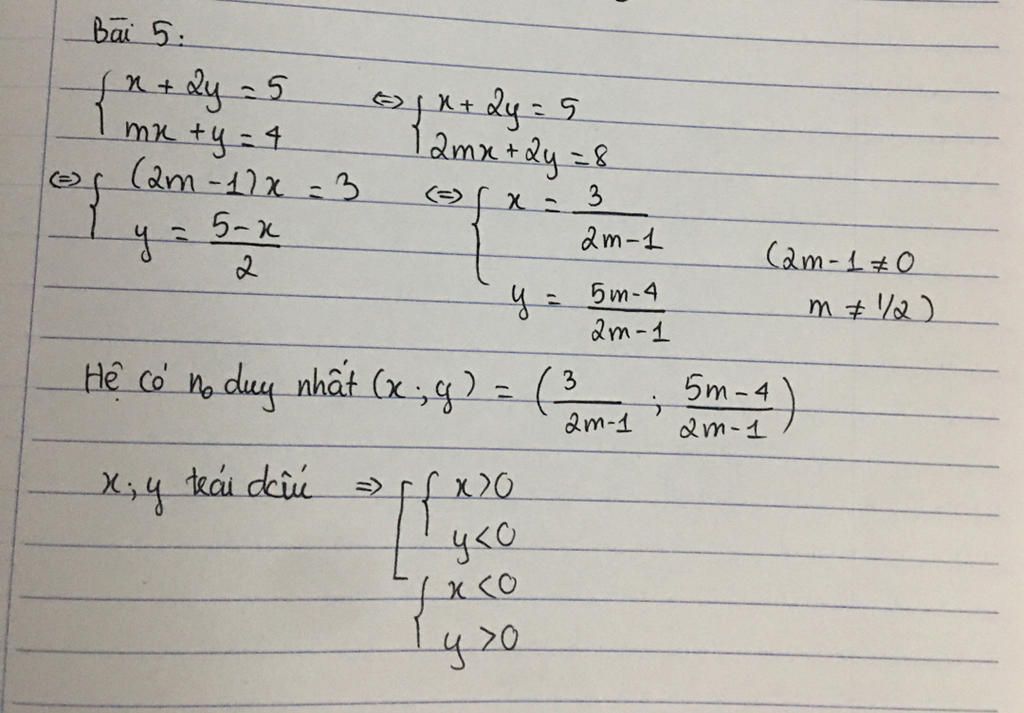 Bài 5:
{ x + 2y = 5 <=> { x + 2y = 5
mx + y = 4 2mx + 2y = 8
<=> { (2m - 1)x = 3 <=> { x = 3/(2m-1)
y = (5-x)/2 y = (5m-4)/(2m-1) (2m-1 ≠ 0
m ≠ 1/2)
Hệ có no duy nhất (x; y) = (3/(2m-1) ; (5m-4)/(2m-1))
x; y trái dấu => [ { x>0
y<0
{ x<0
y>0